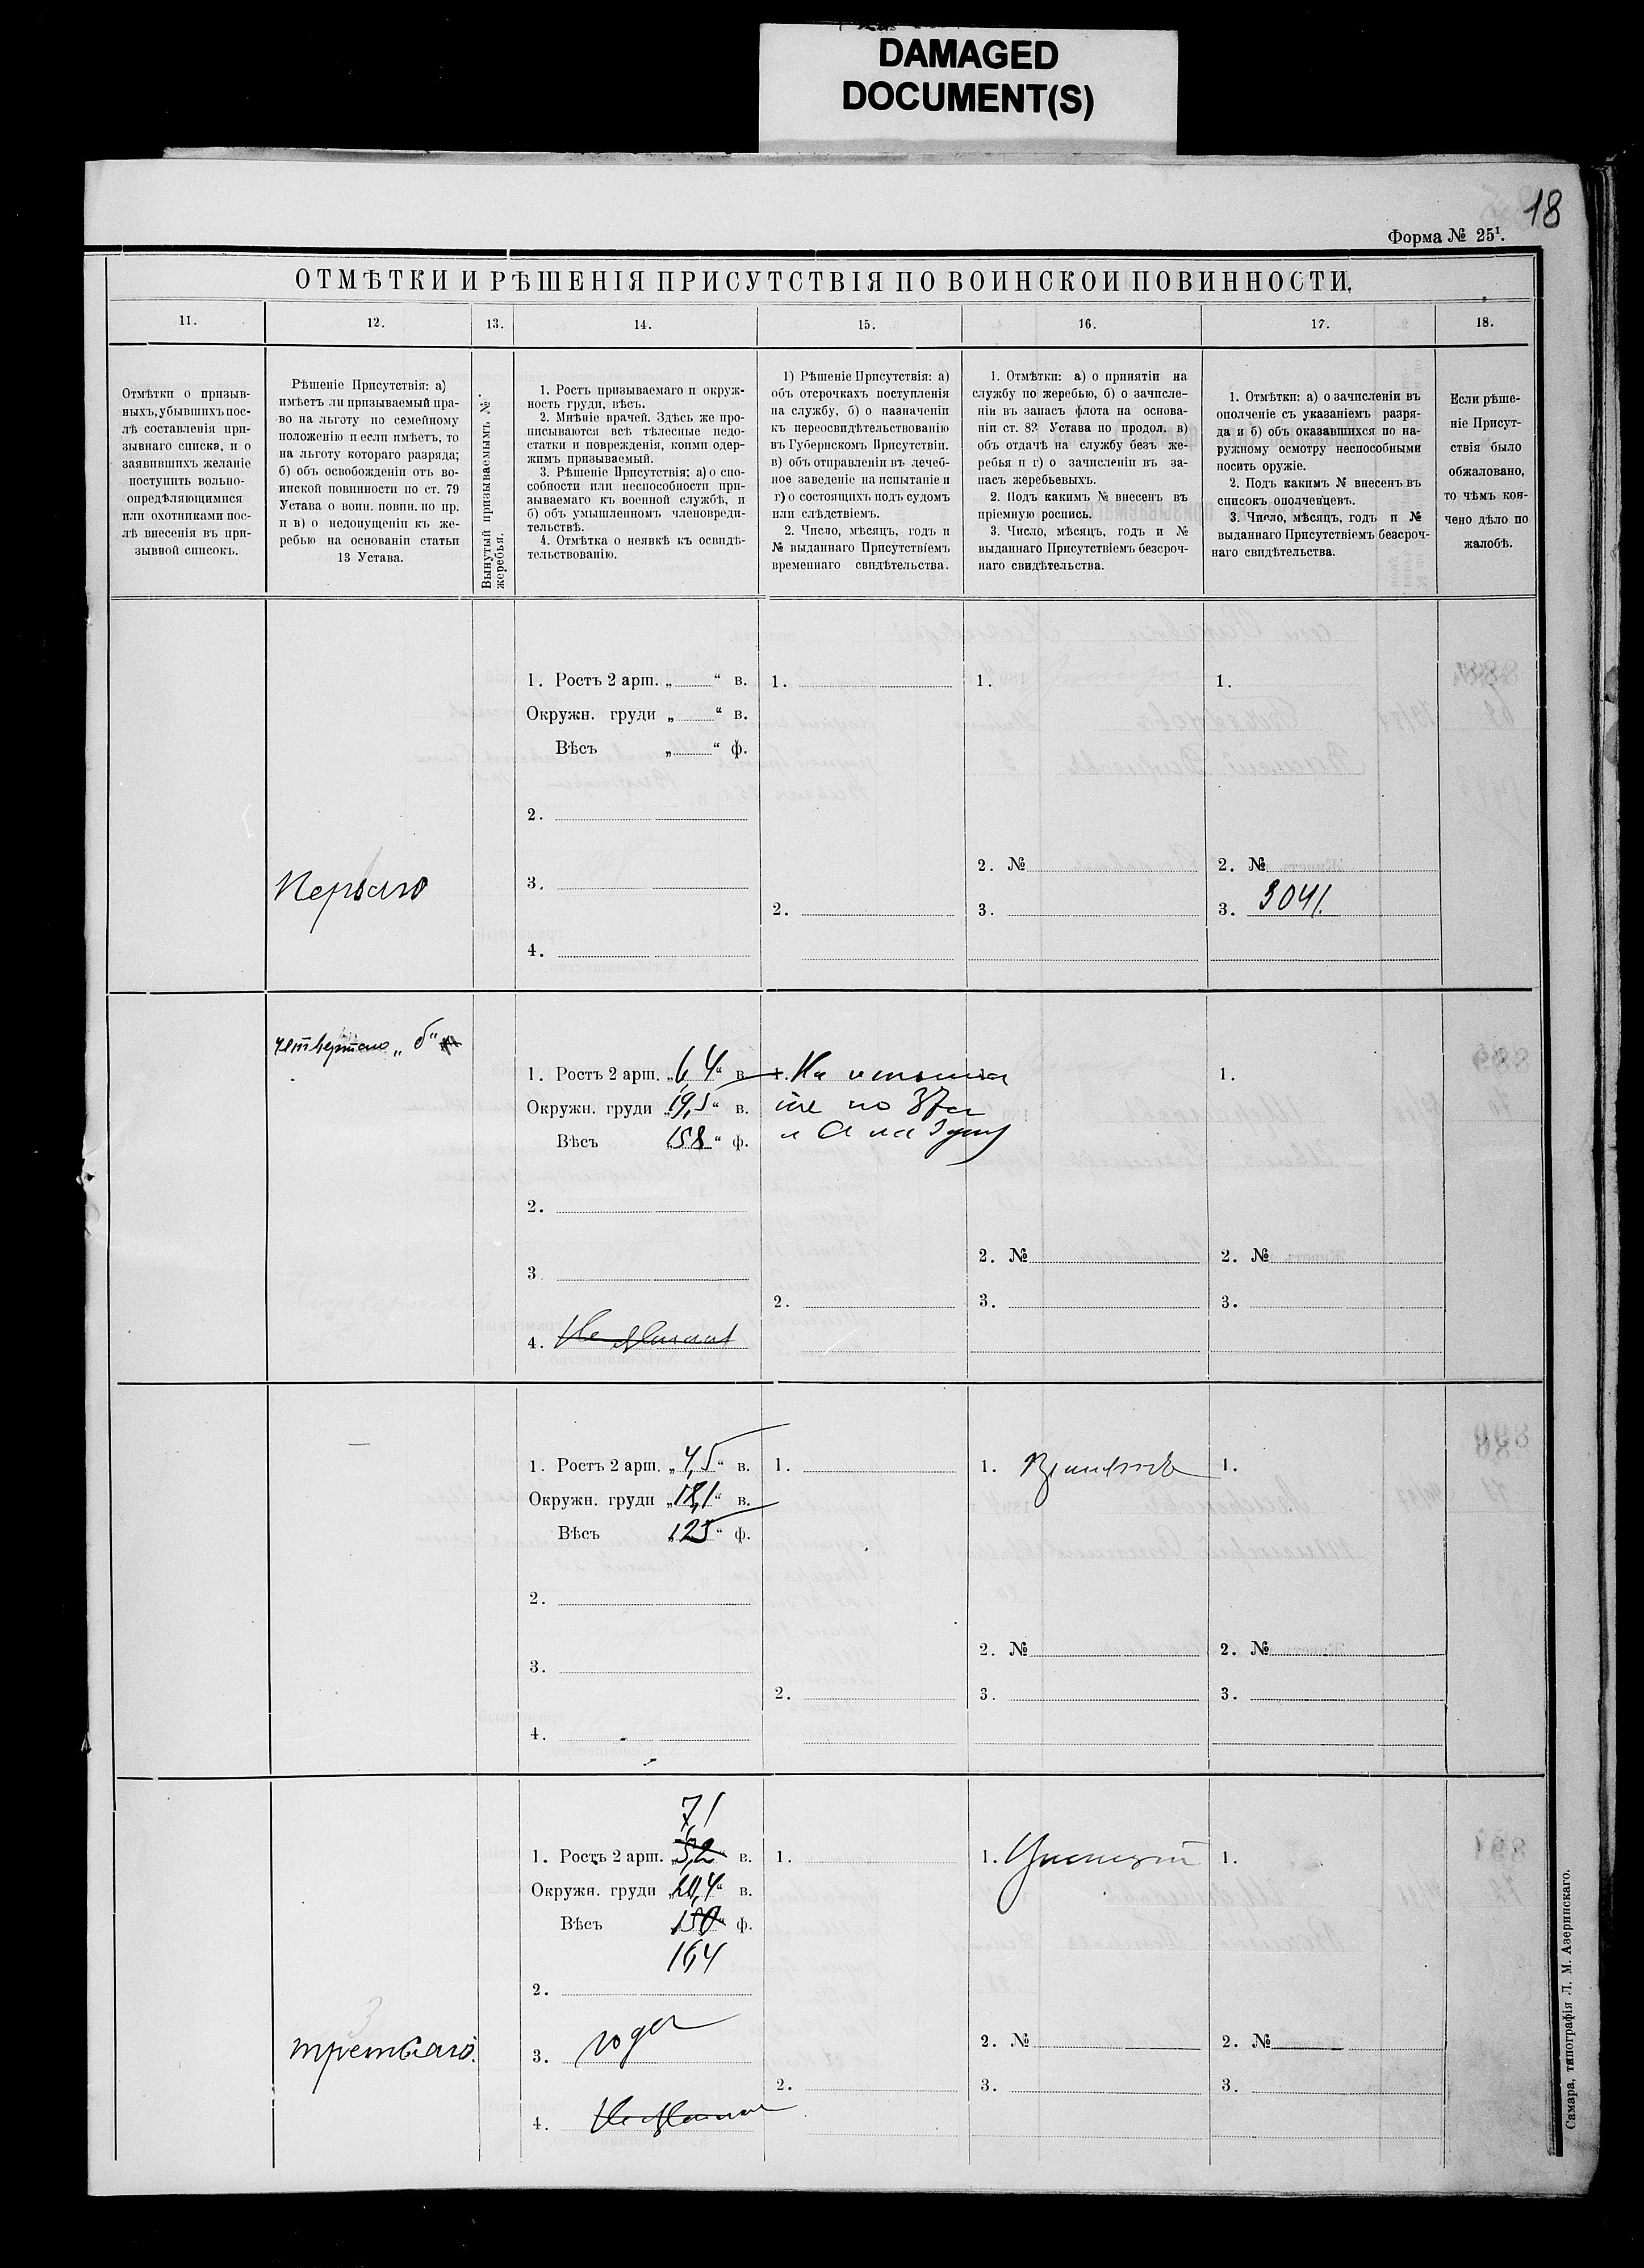 DAMAGED
DOCUMENT(S)
18
Форма № 25¹.
ОТМѢТКИ И РѢШЕНІЯ ПРИСУТСТВІЯ ПО ВОИНСКОИ ПОВИННОСТИ.
11.
12.
13.
14.
15.
16.
17.
18.
Отмѣтки о призыв-
ныхъ, убывшихъ пос-
лѣ составленія при-
зывнаго списка, и о
заявившихъ желаніе
поступить вольно-
опредѣляющимися
или охотниками пос-
лѣ внесенія въ при-
зывной списокъ.
Рѣшеніе Присутствія: а)
имѣетъ ли призываемый пра-
во на льготу по семейному
положенію и если имѣетъ, то
на льготу котораго разряда;
б) объ освобожденіи отъ во-
инской повинности по ст. 79
Устава о воин. повин. по пр.
и в) о недопущеніи къ же-
ребью на основаніи статьи
13 Устава.
Вынутый призываемымъ №
жеребья.
1. Ростъ призываемаго и окруж-
ность груди, вѣсъ.
2. Мнѣніе врачей. Здѣсь же про-
писываются всѣ тѣлесные недо-
статки и поврежденія, коими одер-
жимъ призываемый.
3. Рѣшеніе Присутствія; а) о спо-
собности или неспособности при-
зываемаго къ военной службѣ, и
б) объ умышленномъ членовреди-
тельствѣ.
4. Отмѣтка о неявкѣ къ освидѣ-
тельствованію.
1) Рѣшеніе Присутствія: а)
объ отсрочкахъ поступленія
на службу, б) о назначеніи
къ переосвидѣтельствованію
въ Губернскомъ Присутствіи.
в) объ отправленіи въ лечеб-
ное заведеніе на испытаніе и
г) о состоящихъ подъ судомъ
или слѣдствіемъ.
2. Число, мѣсяцъ, годъ и
№ выданнаго Присутствіемъ
временнаго свидѣтельства.
1. Отмѣтки: а) о принятіи на
службу по жеребью, б) о зачисле-
ніи въ запасъ флота на основа-
ніи ст. 82 Устава по продол. в)
объ отдачѣ на службу безъ же-
ребья и г) о зачисленіи въ за-
пасъ жеребьевыхъ.
2. Подъ какимъ № внесенъ въ
пріемную роспись.
3. Число, мѣсяцъ, годъ и №
выданнаго Присутствіемъ безсроч-
наго свидѣтельства.
1. Отмѣтки: а) о зачисленіи въ
ополченіе съ указаніемъ разря-
да и б) объ оказавшихся по на-
ружному осмотру неспособными
носить оружіе.
2. Подъ какимъ № внесенъ въ
списокъ ополченцевъ.
3. Число, мѣсяцъ, годъ и №
выданнаго Присутствіемъ безсроч-
наго свидѣтельства.
Если рѣше-
ніе Присут-
ствія было
обжаловано,
то чѣмъ кон-
чено дѣло по
жалобѣ.
1. Ростъ 2 арш. „ “ в. 1. 1. 1.
Окружн. груди „ “ в.
Вѣсъ „ “ ф.
2.
2. № 2. №
Перваго 3.
2. 3. 3. 3041.
4.
четвертаго „б“
1. Ростъ 2 арш. „6,4“ в. 1. На 1.
Окружн. груди „19,5“ в.
Вѣсъ 158 “ ф.
2.
2. № 2. №
3
2. 3. 3.
4. Не явился
1. Ростъ 2 арш. „4,5“ в. 1. 1. 1.
Окружн. груди „18,1“ в.
Вѣсъ „125“ ф.
2.
2. № 2. №
3.
2. 3. 3.
4.
7,1
1. Ростъ 2 арш. „5,2“ в. 1. 1. 1.
Окружн. груди „20,4“ в.
Вѣсъ 150“ ф.
164
2.
третьяго. 3. годен 2. № 2. №
2. 3. 3.
4. Не явился
Самара, типографія Л. М. Азеринскаго.